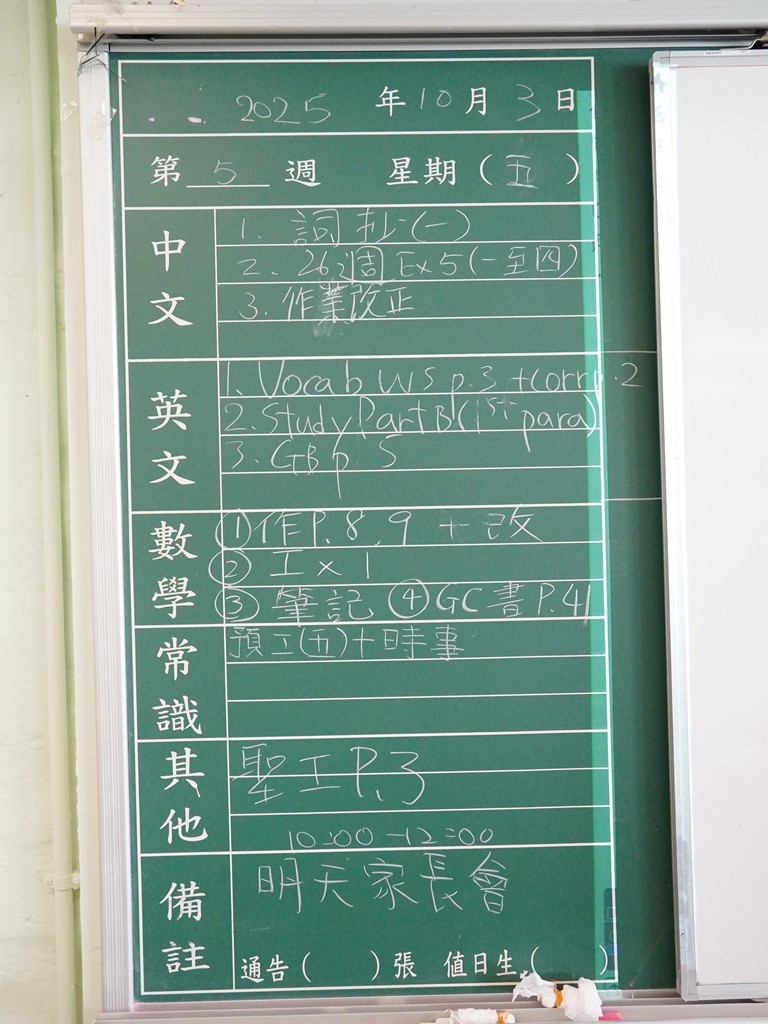 2025 年 10 月 3 日
第 5 週 星期 ( 五 )
中文
1. 詞 (一)
2. 26週 Ex5 (一至四)
3. 作業改正
英文
1. Vocab WS p.3 + Corr p.2
2. Study Part B (1st para)
3. GB p.5
數學
① 作P.8, 9 + 改
② 工 x 1
③ 筆記 ④ GC 書 P.41
常識
預工(五) + 時事
其他
聖工 P.3
10:00 - 12:00
備註
明天家長會
通告 ( ) 張 值日生 ( )